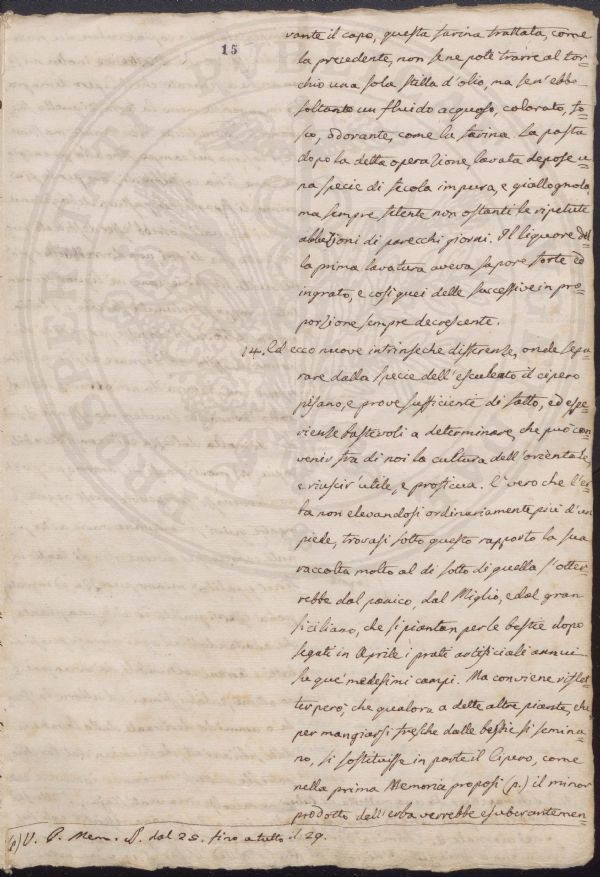 15
vante il capo, questa farina trattata, come
la precedente, non se ne potè trarre al tor=
chio una sola stilla d'olio, ma sen'ebbe
soltanto un fluido acquoso, colorato, fo=
sco, odorante, come la farina. La pasta
dopo la detta operazione, lavata depose u=
na specie di fecola impura, e giallognola
ma sempre fetente non ostanti le ripetute
abluzioni di parecchi giorni. Il liquore del=
la prima lavatura aveva sapore forte ed
ingrato, e così quei delle successive in pro=
porzione sempre decrescente.
14. Ed ecco nuove intrinseche differenze, onde sepa=
rare dalla specie dell'esculento il cipero
pisano, e prove sufficiente di fatto, ed espe=
rienze bastevoli a determinare, che può con=
venir fra di noi la cultura dell'orientale
e riuscir' utile, e proficua. E' vero che l'er=
ba non elevandosi ordinariamente più d'un
piede, trovasi sotto questo rapporto la sua
raccolta molto al di sotto di quella s'otter=
rebbe dal panico, dal Miglio, e dal gran=
siciliano, che si piantan per le bestie dopo
segati in Aprile i prati artificiali annui
su que' medesimi campi. Ma conviene riflet=
ter però, che qualora a dette altre piante, che
per mangiarsi fresche dalle bestie si semina=
no, si sostituisse in parte il Cipero, come
nella prima Memoria proposi (p.) il minor
prodotto dell'erba verrebbe esuberantemen=
(p) V. P. Mem. §. dal 25. fino a tutto il 29.
PROSPERITATI PVBLICAE